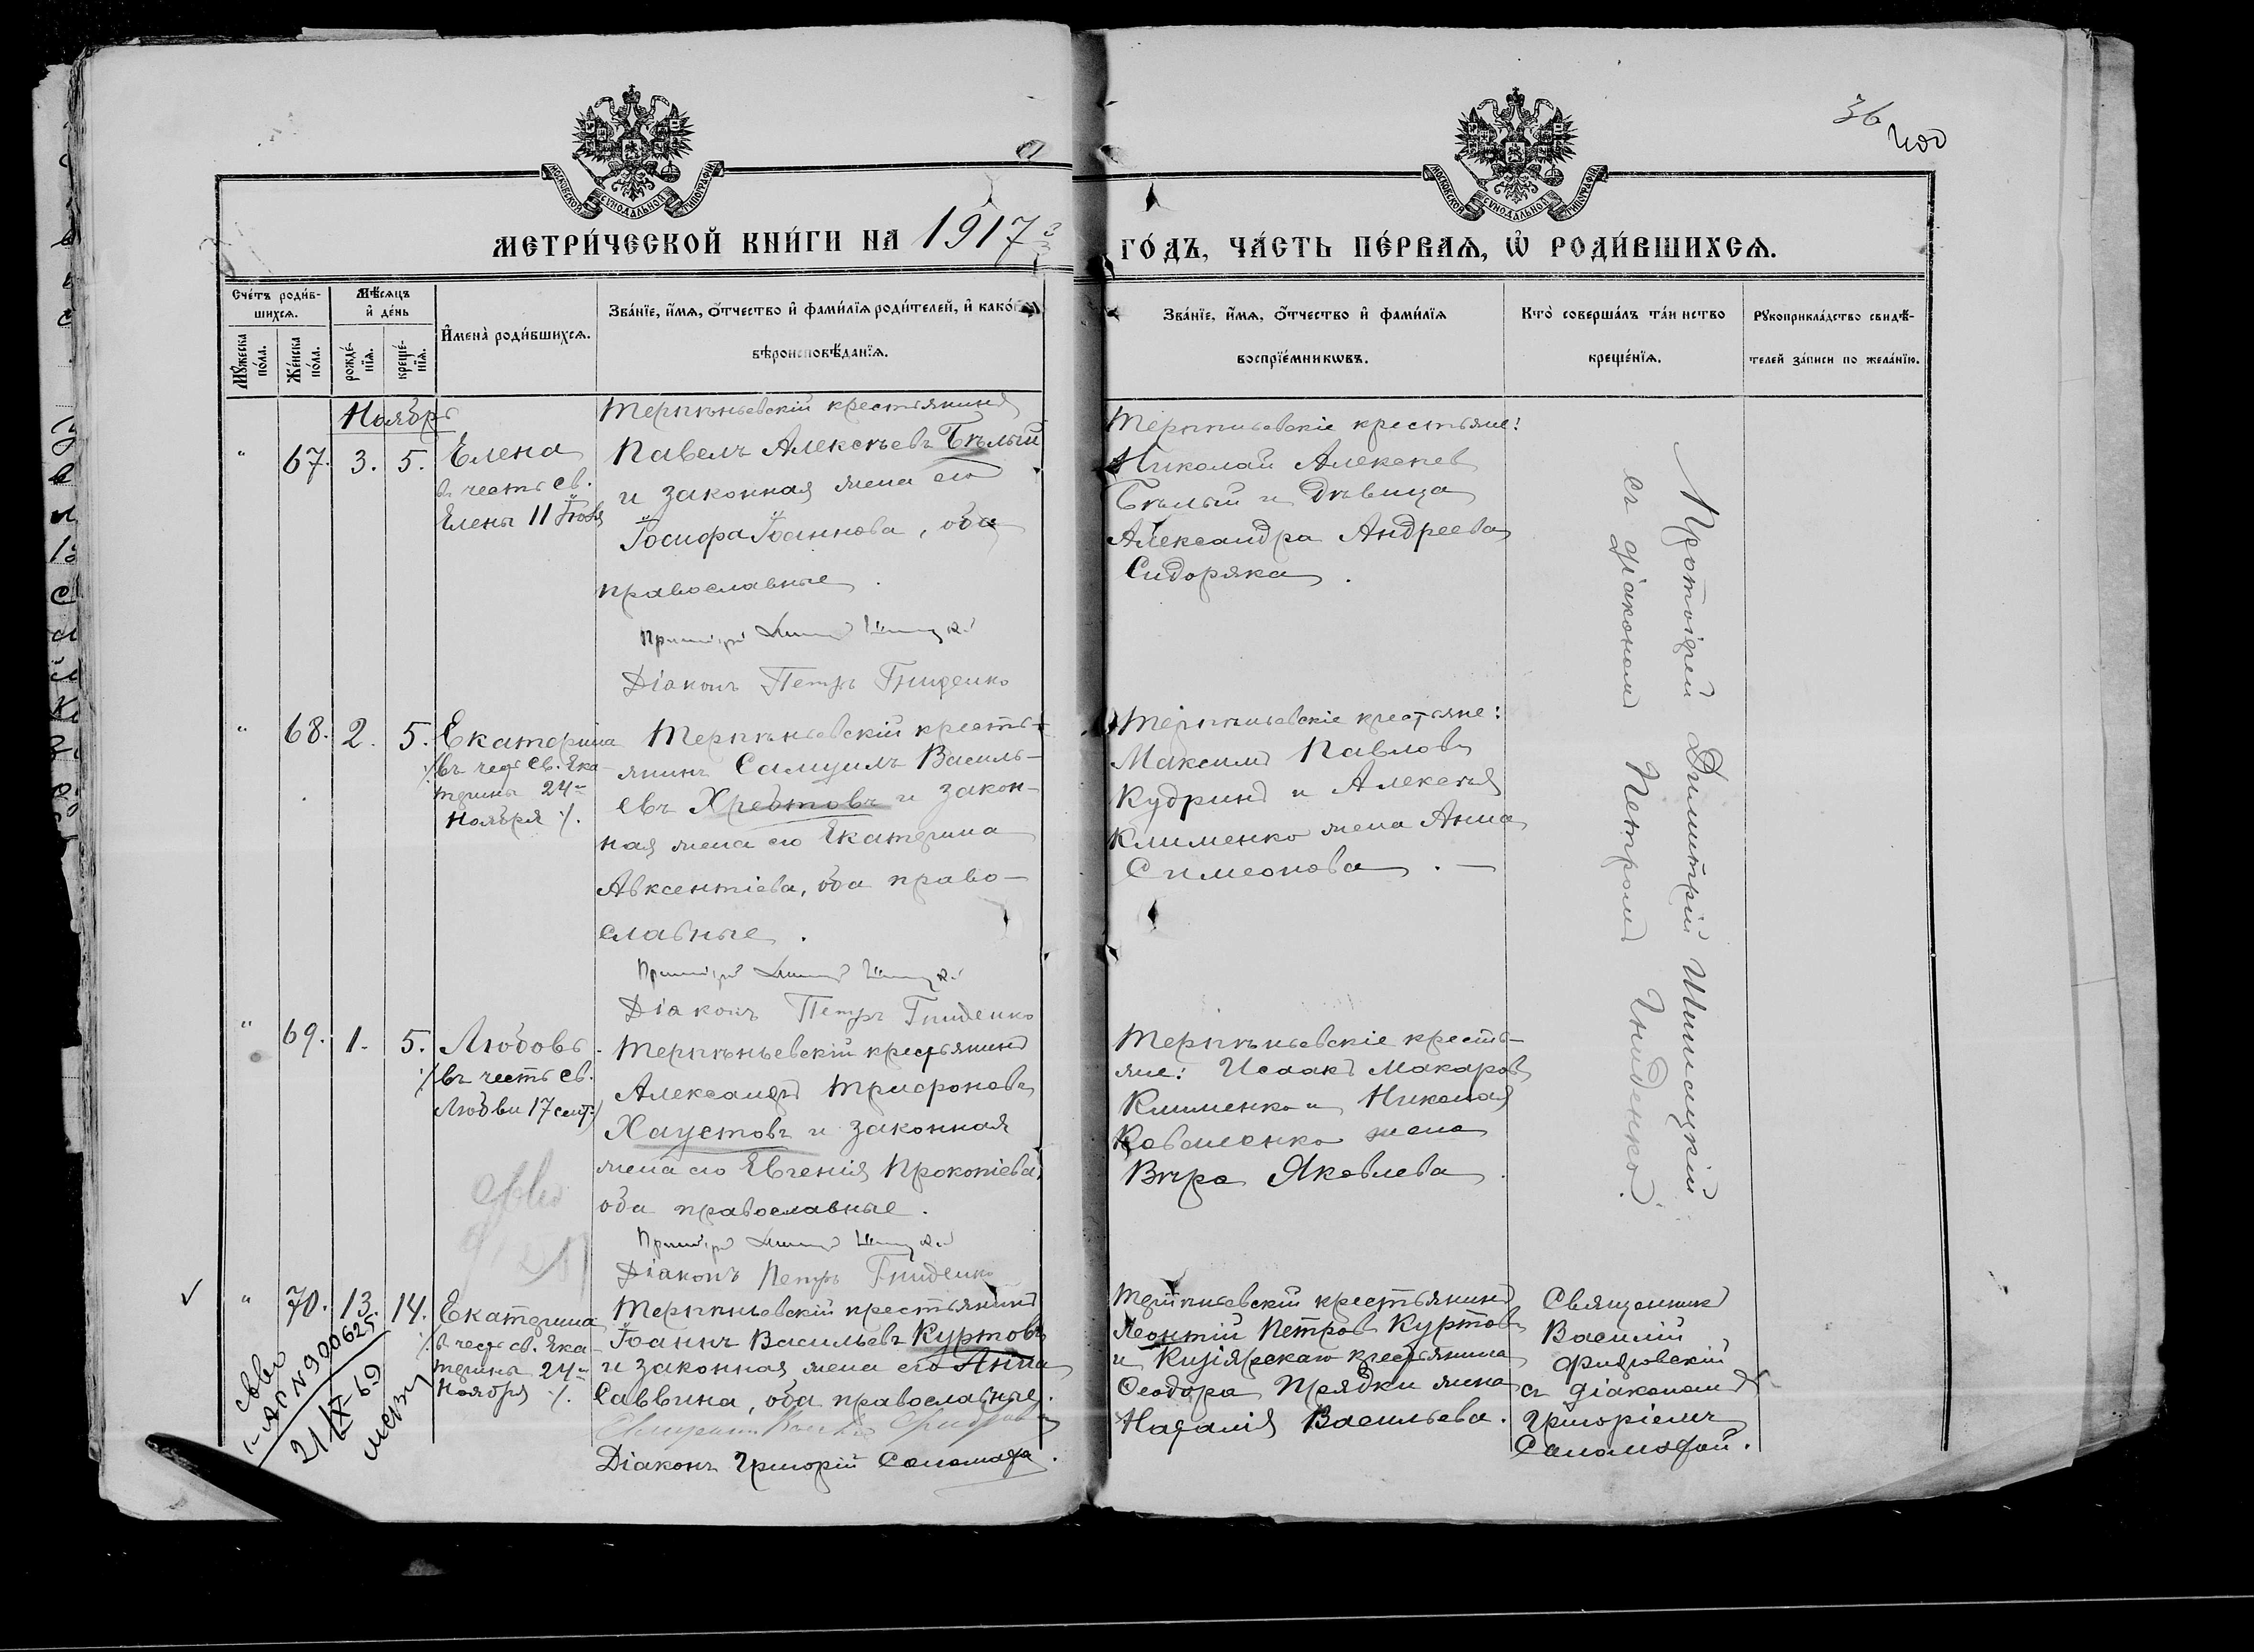 36
400
МОСКОВСКОЙ СУНОДАЛЬНОЙ ТИПОГРАФІИ
МОСКОВСКОЙ СУНОДАЛЬНОЙ ТИПОГРАФІИ
МЕТРИ́ЧЕСКОЙ КНИ́ГИ НА 1917
ГО́ДЪ, ЧА́СТЬ ПЕ́РВАѦ, Ѿ РОДИ́ВШИХСѦ.
Сче́тъ роди́в-
шихсѧ.
Мꙋ́жеска по́ла.
Же́нска по́ла.
Мѣ́сѧцъ
и҆ де́нь
рожде́-
нїѧ.
креще́-
нїѧ.
И҆мена̀ роди́вшихсѧ.
Зва́нїе, и҆́мѧ, ѻ҆́тчество и҆ фами́лїѧ роди́телей, и҆ како́гѡ
вѣроисповѣ́данїѧ.
Зва́нїе, и҆́мѧ, ѻ҆́тчество и҆ фами́лїѧ
воспрїе́мникѡвъ.
Кто̀ соверша́лъ та́инство
креще́нїѧ.
Рꙋкоприкла́дство свидѣ́-
телей за́писи по жела́нїю.
Ноябрь
" 67. 3. 5.
Елена
въ честь св.
Елены 11 Іюля
Терпѣньевскій крестьянинъ
Павелъ Алексѣевъ Бѣлый
и законная жена его
Іосифа Іоаннова, оба
православные.
Діаконъ Петръ Гниденко
Терпѣньевскіе крестьяне:
Николай Алексѣев
Бѣлый и дѣвица
Александра Андреева
Сидоряка.
Протоіерей Димитрій Шишацкій
съ діакономъ Петромъ Гниденко.
" 68. 2. 5.
Екатерина
/въ честь св. Ека-
терины 24-
Ноября /.
Терпѣньевскій кресть-
янинъ Самуилъ Василь-
евъ Хребтовъ и закон-
ная жена его Екатерина
Авксентіева, оба право-
славные.
Діаконъ Петръ Гниденко
Терпѣньевскіе крестьяне:
Максимъ Павловъ
Кудринъ и Алексѣя
Клименко жена Анна
Симеонова.
" 69. 1. 5.
Любовь.
/въ честь св.
Любви 17 сент./
Терпѣньевскій крестьянинъ
Александръ Трифоновъ
Хаустовъ и законная
жена его Евгенія Прокопіева,
оба православные.
Діаконъ Петръ Гниденко
Терпѣньевскіе кресть-
яне: Исаакъ Макаровъ
Клименко и Николая
Коваленко жена
Вѣра Яковлева.
" 70. 13. 14.
Екатерина
/въ честь св. Ека-
терины 24-
Ноября /.
Терпѣньевскій крестьянинъ
Іоаннъ Васильевъ Куртовъ
и законная жена его Анна
Саввина, оба православные.
Діаконъ Григорій Соломаха.
Терпѣньевскій крестьянинъ
Леонтій Петровъ Куртовъ
и Кизіярскаго крестьянина
Ѳеодора Прядки жена
Наталія Васильева.
Священникъ
Василій
с діакономъ
Григоріемъ
Соломахой.
№ 900625
21/IX-69